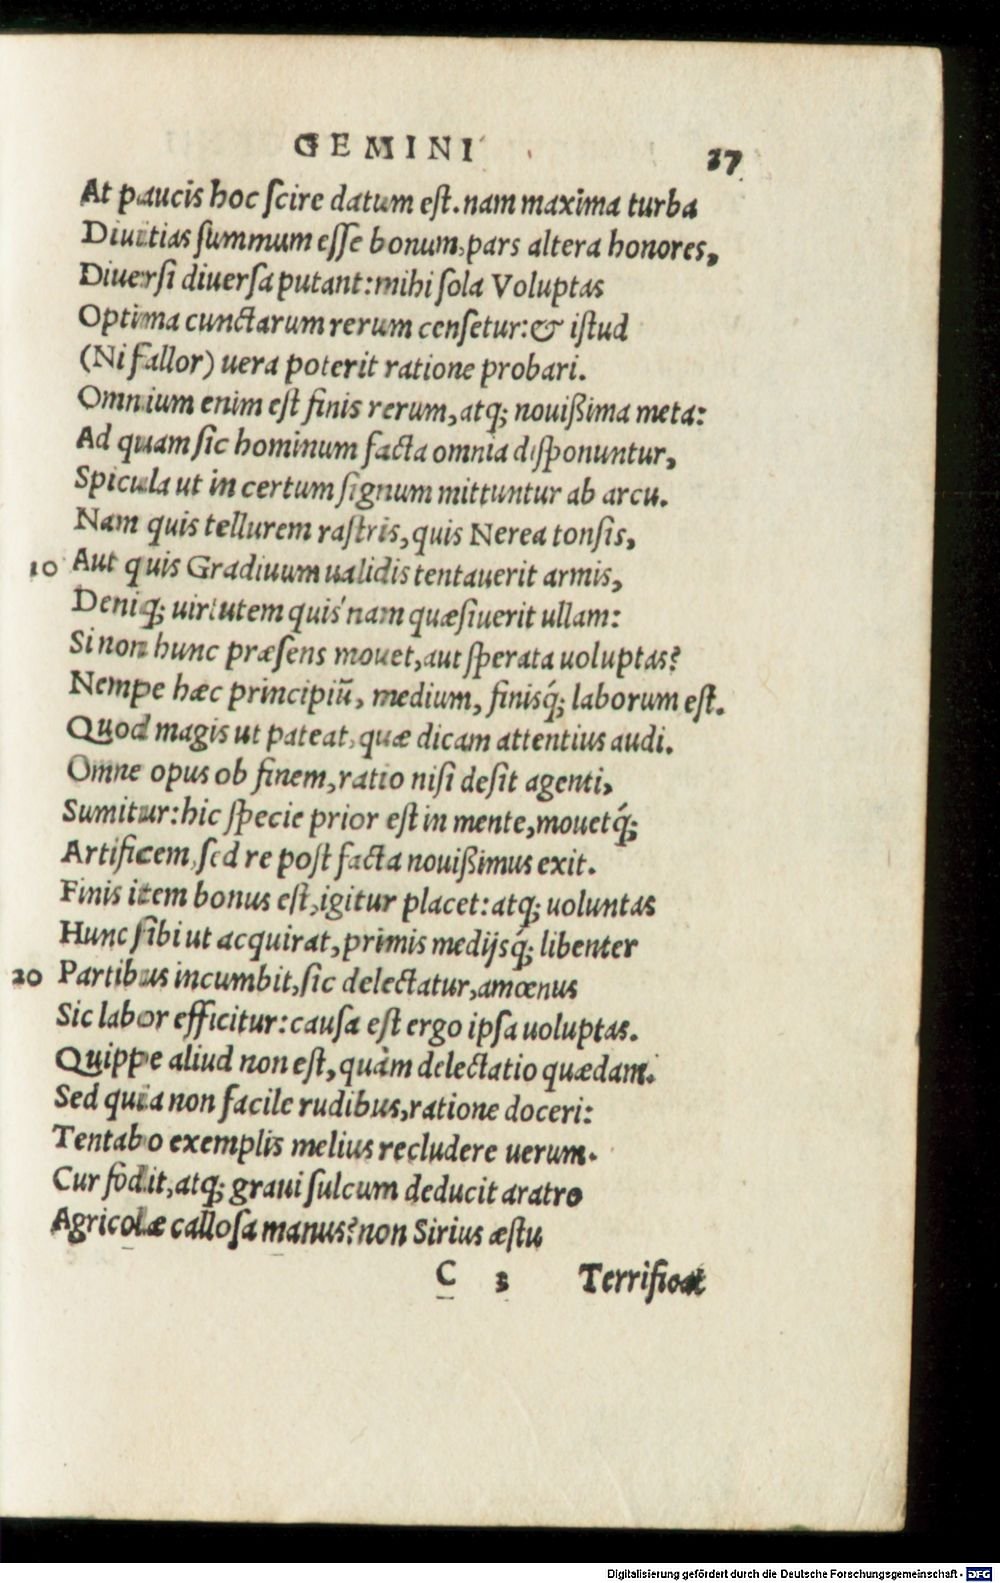 GEMINI 37
At paucis hoc ſcire datum eſt. nam maxima turba
Diuitias ſummum eſſe bonum, pars altera honores,
Diuerſi diuerſa putant: mihi ſola Voluptas
Optima cunctarum rerum cenſetur: & iſtud
(Ni fallor) uera poterit ratione probari.
Omnium enim eſt finis rerum, atq; nouißima meta:
Ad quam ſic hominum facta omnia diſponuntur,
Spicula ut in certum ſignum mittuntur ab arcu.
Nam quis tellurem raſtris, quis Nerea tonſis,
10 Aut quis Gradiuum ualidis tentauerit armis,
Deniq; uirtutem quis'nam quæſiuerit ullam:
Si non hunc præſens mouet, aut ſperata uoluptas?
Nempe hæc principiũ, medium, finisq́; laborum eſt.
Quod magis ut pateat, quæ dicam attentius audi.
Omne opus ob finem, ratio niſi deſit agenti,
Sumitur: hic ſpecie prior eſt in mente, mouetq́;
Artificem, ſed re poſt facta nouißimus exit.
Finis item bonus eſt, igitur placet: atq; uoluntas
Hunc ſibi ut acquirat, primis medijsq́; libenter
20 Partibus incumbit, ſic delectatur, amœnus
Sic labor efficitur: cauſa eſt ergo ipſa uoluptas.
Quippe aliud non eſt, quàm delectatio quædam.
Sed quia non facile rudibus, ratione doceri:
Tentabo exemplis melius recludere uerum.
Cur fodit, atq; graui ſulcum deducit aratro
Agricolæ calloſa manus? non Sirius æſtu
C 3 Terrificat
Digitalisierung gefördert durch die Deutsche Forschungsgemeinschaft - DFG